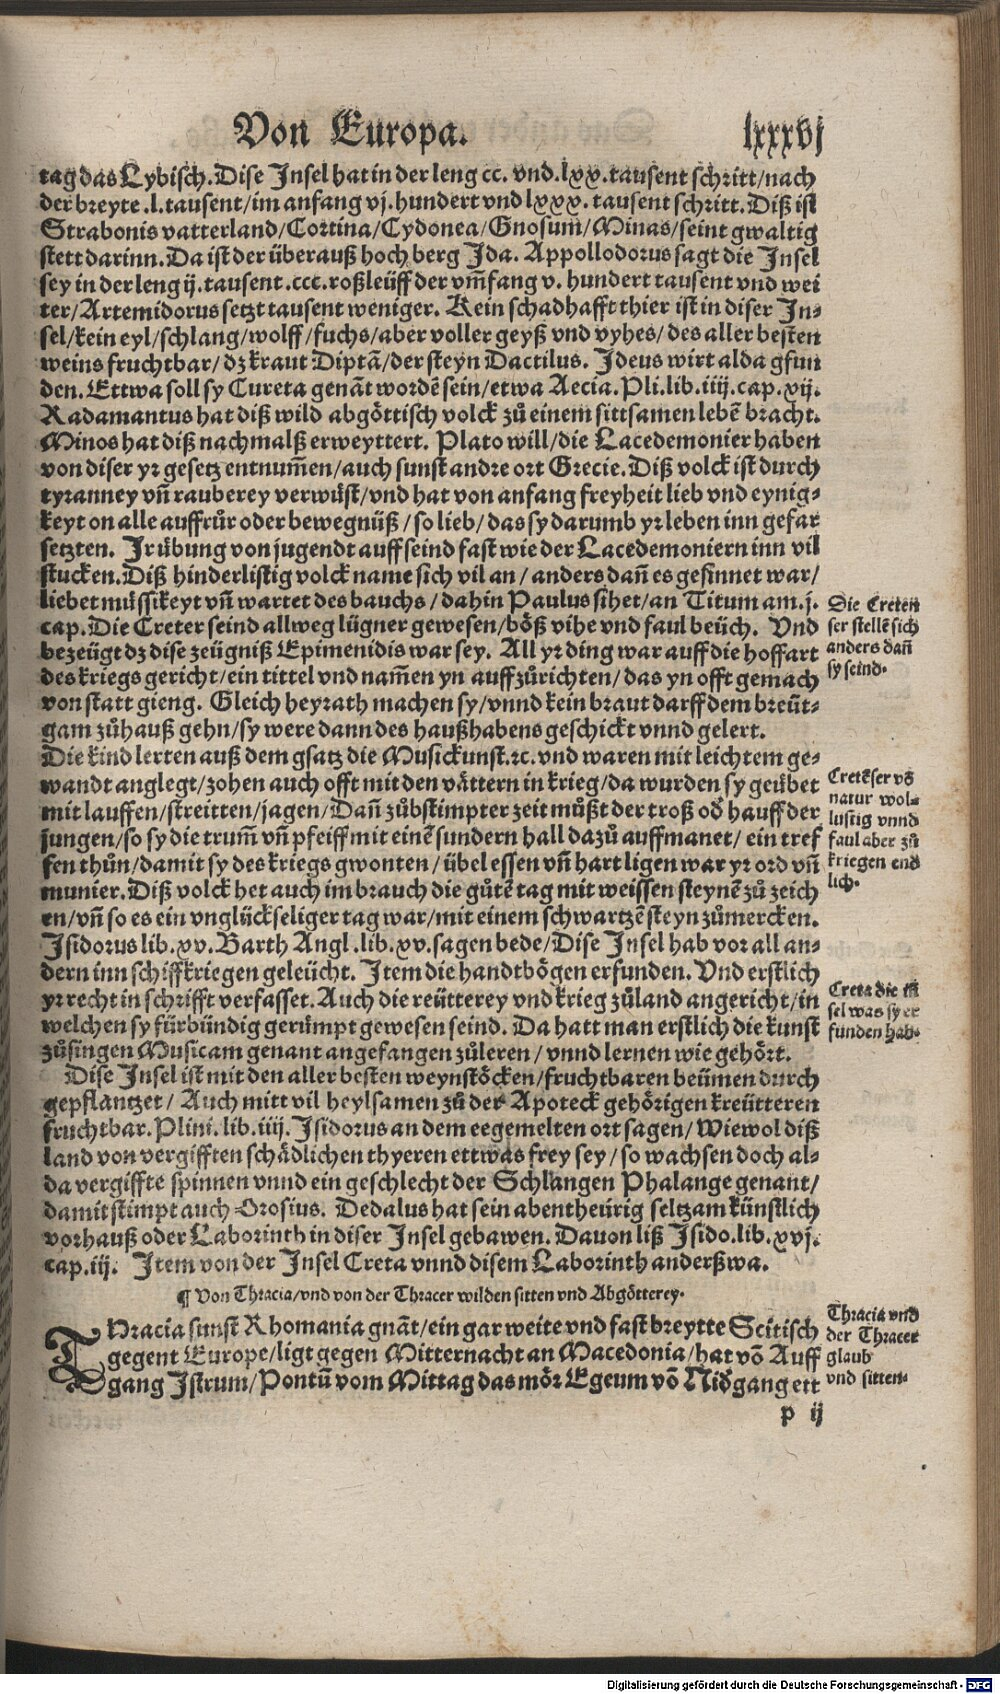 Von Europa. lxxxvj
tag das Lybisch. Dise Insel hat in der leng cc. vnd .lxx. tausent schritt/nach
der breyte .l. tausent/im anfang vj. hundert vnd lxxx. tausent schritt. Diß ist
Strabonis vatterland/Cortina/Cydonea/Gnosum̃/Minas/seint gwaltig
stett darinn. Da ist der überauß hoch berg Ida. Appollodorus sagt die Insel
sey in der leng ij. tausent .ccc. roßleüff der vm̃fang v. hundert tausent vnd wei
ter/Artemidorus setzt tausent weniger. Kein schadhafft thier ist in diser In⸗
sel/kein eyl/schlang/wolff/fuchs/aber voller geyß vnd vyhes/des aller besten
weins fruchtbar/dz kraut Diptã/der steyn Dactilus. Ideus wirt alda gfun
den. Ettwa soll sy Cureta genãt wordẽ sein/etwa Aecia. Pli. lib. iiij. cap. xij.
Radamantus hat diß wild abgöttisch volck zů einem sittsamen lebẽ bracht.
Minos hat diß nachmalß erweyttert. Plato will/die Lacedemonier haben
von diser yr gesetz entnum̃en/auch sunst andre ort Grecie. Diß volck ist durch
tyranney vñ rauberey verwüst/vnd hat von anfang freyheit lieb vnd eynig⸗
keyt on alle auffrůr oder bewegnüß/so lieb/das sy darumb yr leben inn gefar
setzten. Ir übung von jugendt auff seind fast wie der Lacedemoniern inn vil
stucken. Diß hinderlistig volck name sich vil an/anders dañ es gesinnet war/
liebet müssikeyt vñ wartet des bauchs/dahin Paulus sihet/an Titum am. j.
cap. Die Creter seind allweg lügner gewesen/böß vihe vnd faul beüch. Vnd
bezeügt dz dise zeügniß Epimenidis war sey. All yr ding war auff die hoffart
des kriegs gericht/ein tittel vnd nam̃en yn auffzůrichten/das yn offt gemach
von statt gieng. Gleich heyrath machen sy/vnnd kein braut darff dem breüt⸗
gam zůhauß gehn/sy were dann des haußhabens geschickt vnnd gelert.
Die Creten
ser stellẽ sich
anders dañ
sy seind.
Die kind lerten auß dem gsatz die Musickunst. ꝛc. vnd waren mit leichtem ge⸗
wandt anglegt/zohen auch offt mit den vättern in krieg/da wurden sy geübet
mit lauffen/streitten/jagen/Dañ zůbstimpter zeit můßt der troß od̃ hauff der
jungen/so sy die trum̃ vñ pfeiff mit einẽ sundern hall dazů auffmanet/ein tref
fen thůn/damit sy des kriegs gwonten/übel essen vñ hart ligen war yr ord vñ
munier. Diß volck het auch im brauch die gůtẽ tag mit weissen steynẽ zů zeich
en/vñ so es ein vnglückseliger tag war/mit einem schwartzẽ steyn zůmercken.
Cretẽser võ
natur wol⸗
lustig vnnd
faul aber zů
kriegen end
lich.
Isidorus lib. xv. Barth Angl. lib. xv. sagen bede/Dise Insel hab vor all an⸗
dern inn schiffkriegen geleücht. Item die handtbögen erfunden. Vnd erstlich
yr recht in schrifft verfasset. Auch die reütterey vnd krieg zůland angericht/in
welchen sy fürbündig gerümpt gewesen seind. Da hatt man erstlich die kunst
zůsingen Musicam genant angefangen zůleren/vnnd lernen wie gehört.
Creta die in
sel was sy er
funden hab.
Dise Insel ist mit den aller besten weynstöcken/fruchtbaren beümen durch
gepflantzet/Auch mitt vil heylsamen zů der Apoteck gehörigen kreütteren
fruchtbar. Plini. lib. iiij. Isidorus an dem eegemelten ort sagen/Wiewol diß
land von vergifften schädlichen thyeren ettwas frey sey/so wachsen doch al⸗
da vergiffte spinnen vnnd ein geschlecht der Schlangen Phalange genant/
damit stimpt auch Orosius. Dedalus hat sein abentheürig seltzam künstlich
vorhauß oder Laborinth in diser Insel gebawen. Dauon liß Isido. lib. xvj.
cap. iij. Item von der Insel Creta vnnd disem Laborinth anderßwa.
¶ Von Thracia/vnd von der Thracer wilden sitten vnd Abgötterey.
THracia sunst Rhomania gnãt/ein gar weite vnd fast breytte Scitisch
gegent Europe/ligt gegen Mitternacht an Macedonia/hat võ Auff
gang Istrum/Pontũ vom Mittag das mör Egeum võ Nid̃gang ett
Thracia vnd
der Thracer
glaub
vnd sitten.
p ij
Digitalisierung gefördert durch die Deutsche Forschungsgemeinschaft - DFG